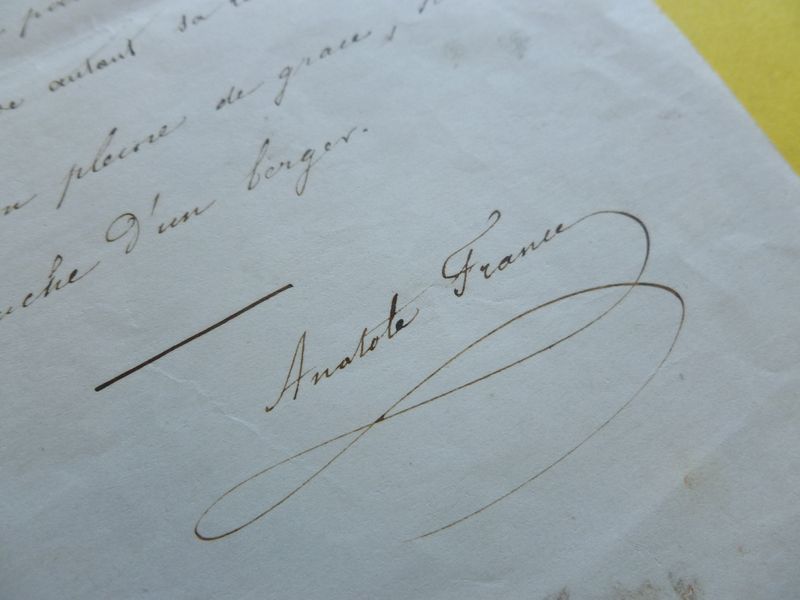 autant sa
pleine de grace,
d'un berger.
Anatole France